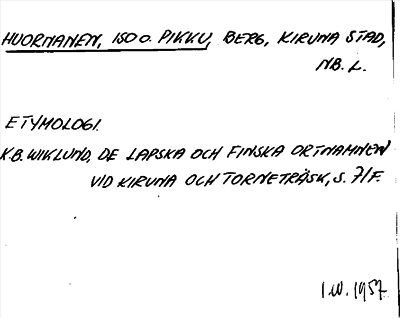 HUORNANEN, ISO O. PIKKU, BERG, KIRUNA STAD,
NB. L.
ETYMOLOGI.
K.B. WIKLUND, DE LAPSKA OCH FINSKA ORTNAMNEN
VID KIRUNA OCH TORNETRÄSK, S. 7 F.
I.W. 1957